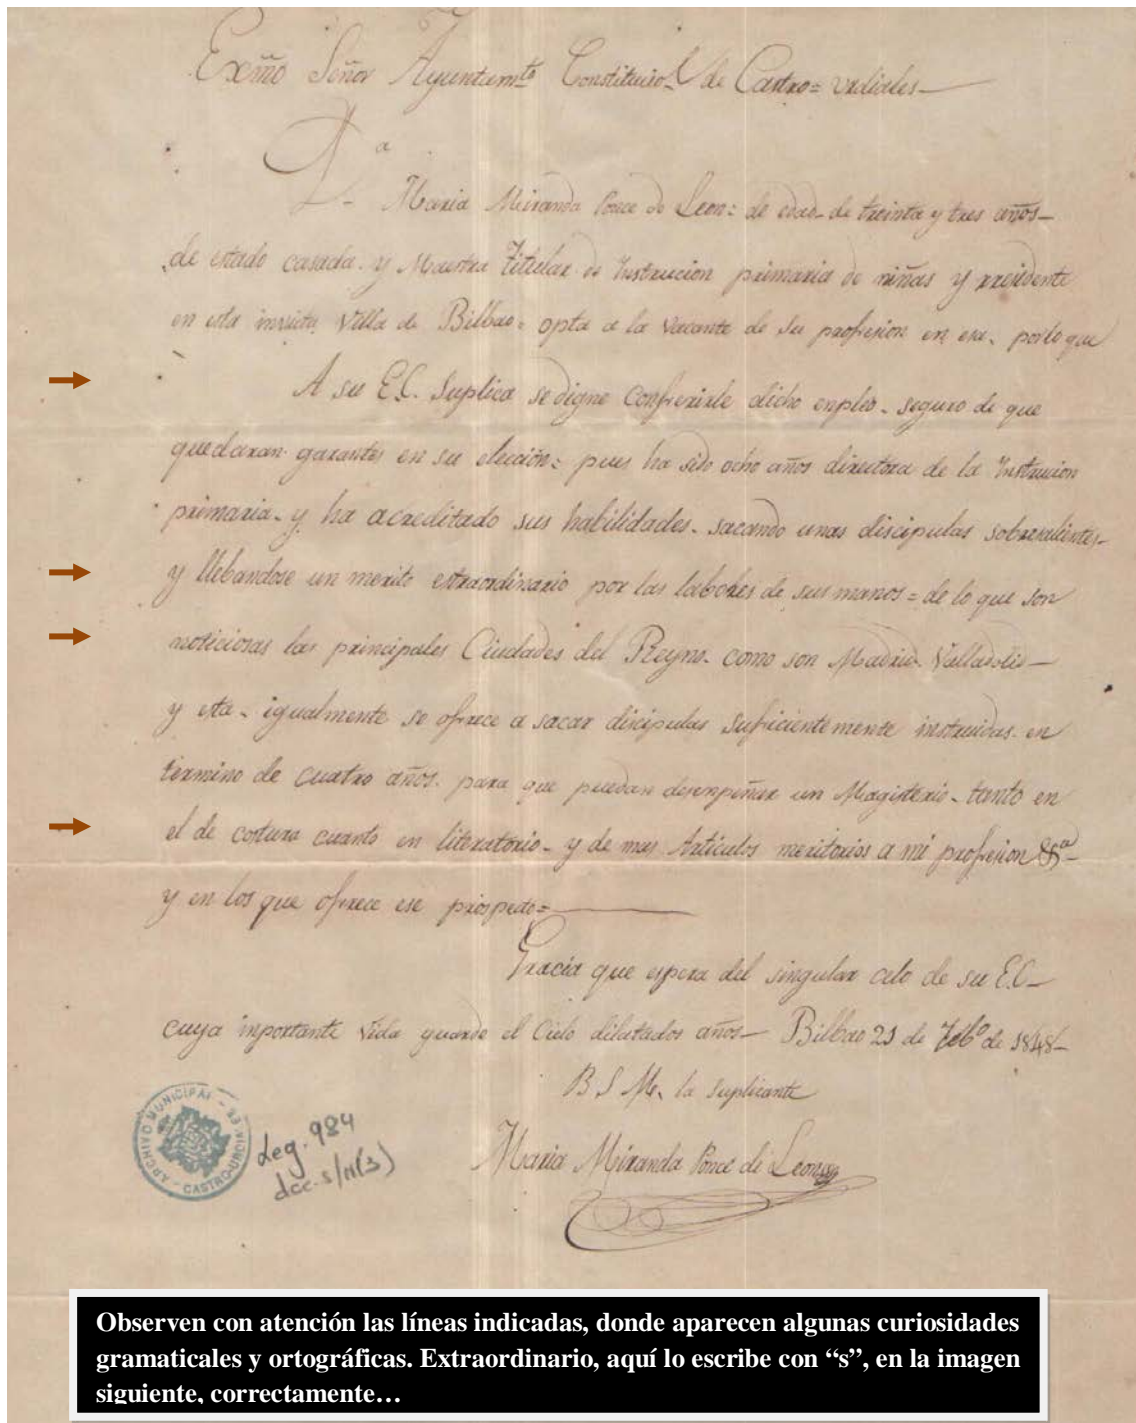 Exmõ Señor Ayuntamto Constituciol de Castro=urdiales—
Da
Maria Miranda Ponce de Leon= de edad de treinta y tres años—
de estado casada y Maestra Titular de Instrucion primaria de niñas y rresidente
en esta invicta Villa de Bilbao= opta a la vacante de su profesion en esa, por lo que
A su E.C. Suplica se digne Confrerirle dicho enpleo- seguro de que
quedaran garantes en su elección= pues ha sido ocho años directora de la Instrucion
primaria- y ha acreditado sus habilidades- sacando unas discipulas sobresalientes-
y llebandose un merito estraordinario por las labores de sus manos= de lo que son
noticiosas las principales Ciudades del Reyno- como son Madrid- Valladolid—
y esta- igualmente se ofrece a sacar discipulas suficientemente instruidas en
termino de cuatro años. para que puedan desenpeñar un Magisterio- tanto en
el de costura cuanto en literatorio- y de mas Articulos meritorios a mi profesion &a-
y en los que ofrece ese prospecto=
Gracia que espera del singular celo de su E.C—
cuya inportante vida guarde el Cielo dilatados años— Bilbao 21 de Febo de 1848-
B S M. la suplicante
Maria Miranda Ponce de Leon
ARCHIVO MUNICIPAL - CASTRO-URDIALES
Leg. 984
doc. s/n(3)
Observen con atención las líneas indicadas, donde aparecen algunas curiosidades
gramaticales y ortográficas. Extraordinario, aquí lo escribe con “s”, en la imagen
siguiente, correctamente…